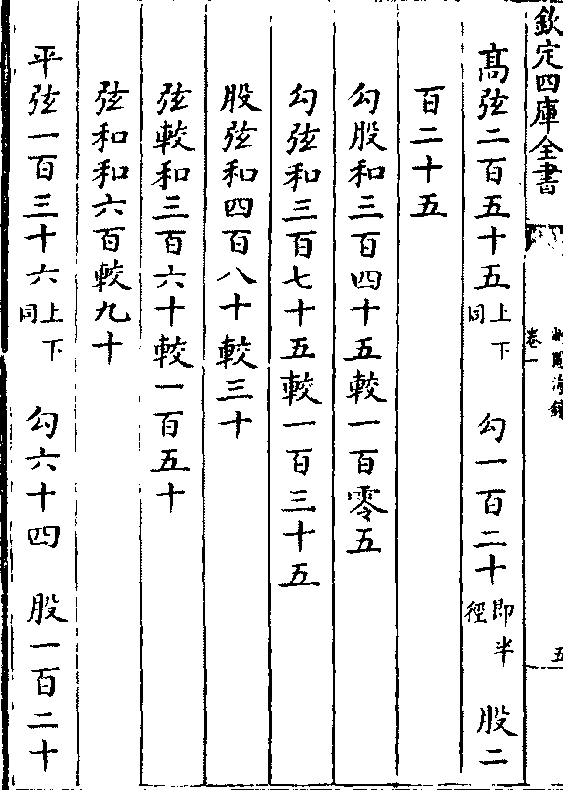 欽定四庫全書
測圓海鏡
卷一
五
髙弦二百五十五上下同 勾一百二十即半徑 股二
百二十五
勾股和三百四十五較一百零五
勾弦和三百七十五較一百三十五
股弦和四百八十較三十
弦較和三百六十較一百五十
弦和和六百較九十
平弦一百三十六上下同 勾六十四 股一百二十